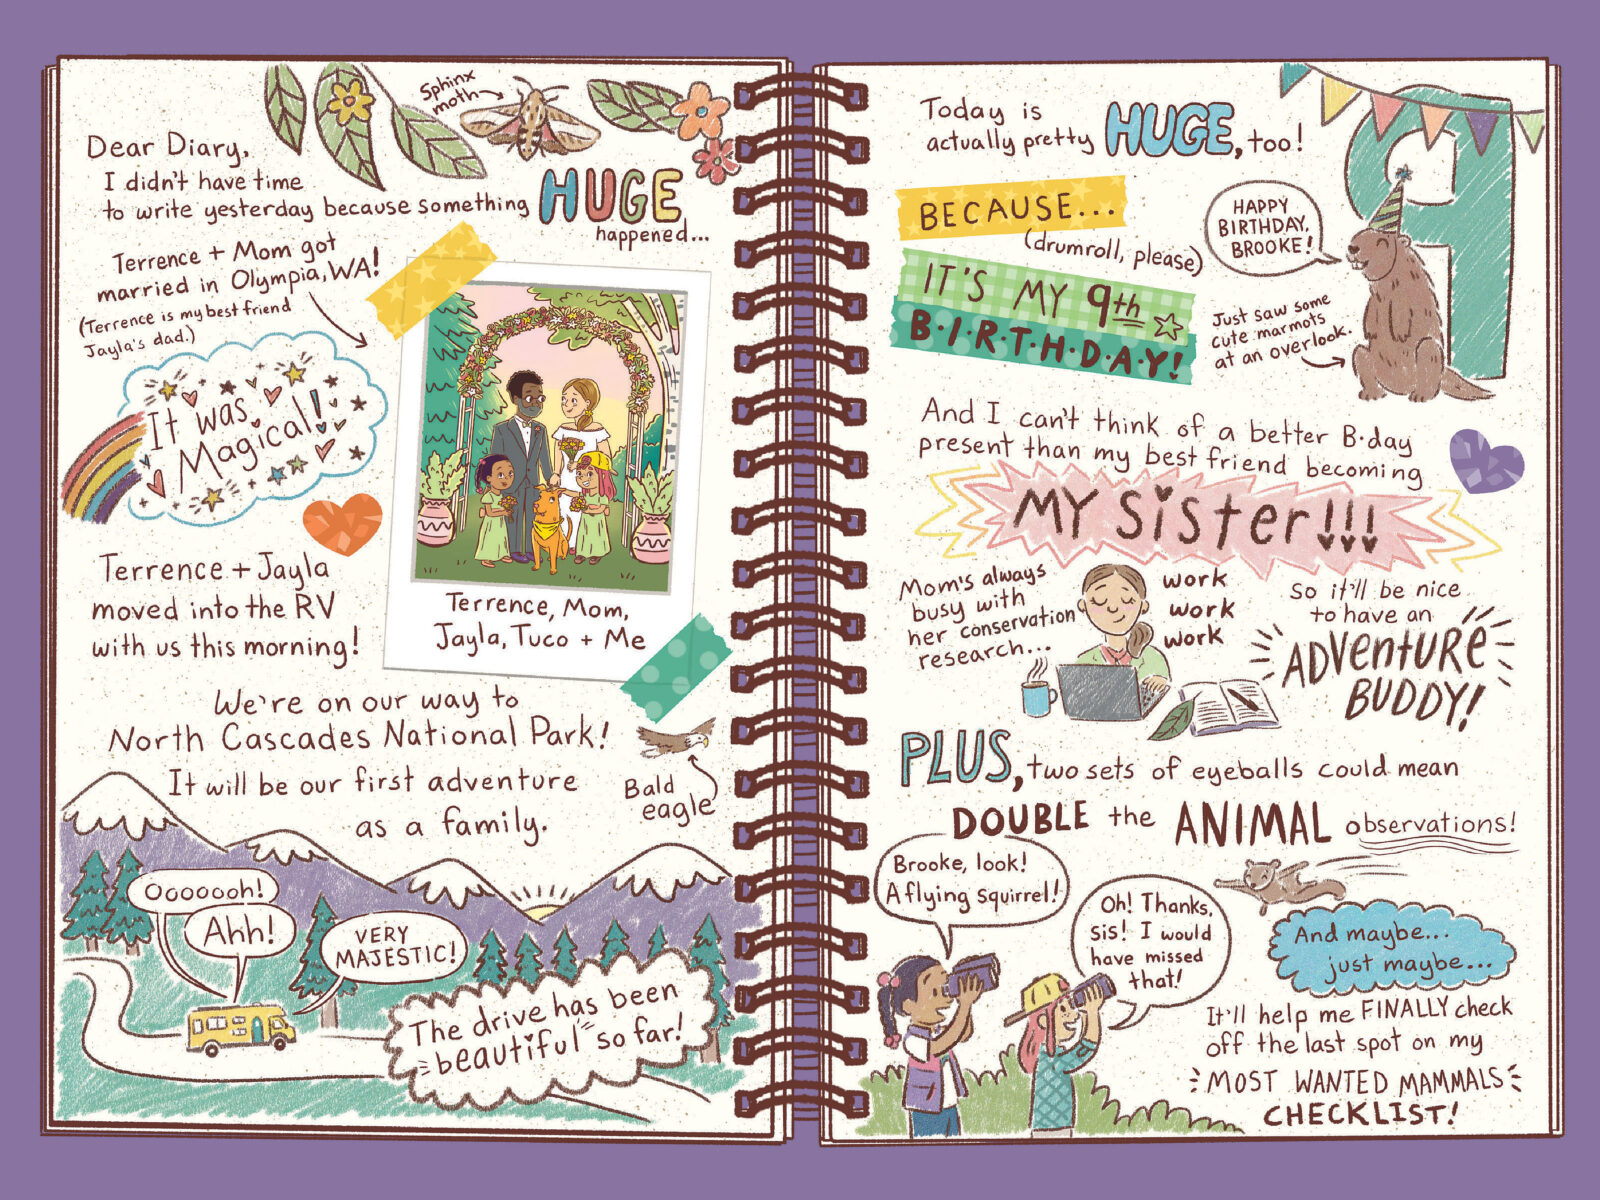 Sphinx
moth
Dear Diary,
I didn't have time
to write yesterday because something HUGE
happened...
Terrence + Mom got
married in Olympia, WA!
(Terrence is my best friend
Jayla's dad.)
It was
Magical!
Terrence + Jayla
moved into the RV
with us this morning!
Terrence, Mom,
Jayla, Tuco + Me
We're on our way to
North Cascades National Park!
It will be our first adventure
as a family.
Bald
eagle
Ooooooh!
Ahh!
VERY
MAJESTIC!
The drive has been
beautiful so far!
Today is
actually pretty HUGE, too!
BECAUSE...
(drumroll, please)
IT'S MY 9th
B·I·R·T·H·D·A·Y!
9
HAPPY
BIRTHDAY,
BROOKE!
Just saw some
cute marmots
at an overlook.
And I can't think of a better B·day
present than my best friend becoming
MY SiSter!!!
Mom's always
busy with
her conservation
research...
work
work
work
So it'll be nice
to have an
ADVenture
BUDDY!
PLUS, two sets of eyeballs could mean
DOUBLE the ANIMAL observations!
Brooke, look!
A flying squirrel!
Oh! Thanks,
sis! I would
have missed
that!
And maybe...
just maybe...
It'll help me FINALLY check
off the last spot on my
MOST WANTED MAMMALS
CHECKLIST!